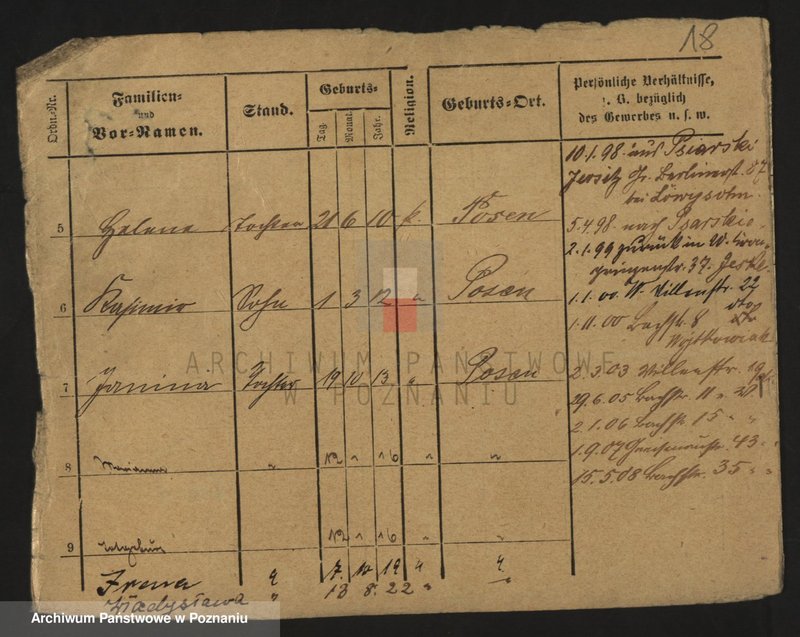 18
Ordn.-Nr.
Familien-
und
Vor-Namen.
Stand.
Geburts-
Tag.
Monat.
Jahr.
Religion.
Geburts-Ort.
Persönliche Verhältnisse,
z. B. bezüglich
des Gewerbes u. s. w.
10.1.98. aus Psiarski
Jersitz Gr. Berlinerst. 87
bei Löwysohn.
5 Helena Tochter 21 6 10 k. Posen
5.4.98. nach Psarskie.
2.1.99 zurück in W.
37. Jeske.
6 Kasimir Sohn 1 3 12 " Posen
1.1.00. W. Villenstr. 22
1.11.00 Bachstr. 8
Wojtkowiak
7 Janina Tochter 19 10 13 " Posen
2.3.03 Villenstr. 19
29.6.05 Bachstr. 11
2.1.06 Bachstr 15 " "
8 Marianna " 12 " 16 " "
1.9.07 43 "
15.5.08 Bachstr. 35 " "
9 12 " 16 " "
Irena " 7. 10 19 " "
Władysława " 13 8. 22 "
ARCHIWUM PAŃSTWOWE
W POZNANIU
Archiwum Państwowe w Poznaniu